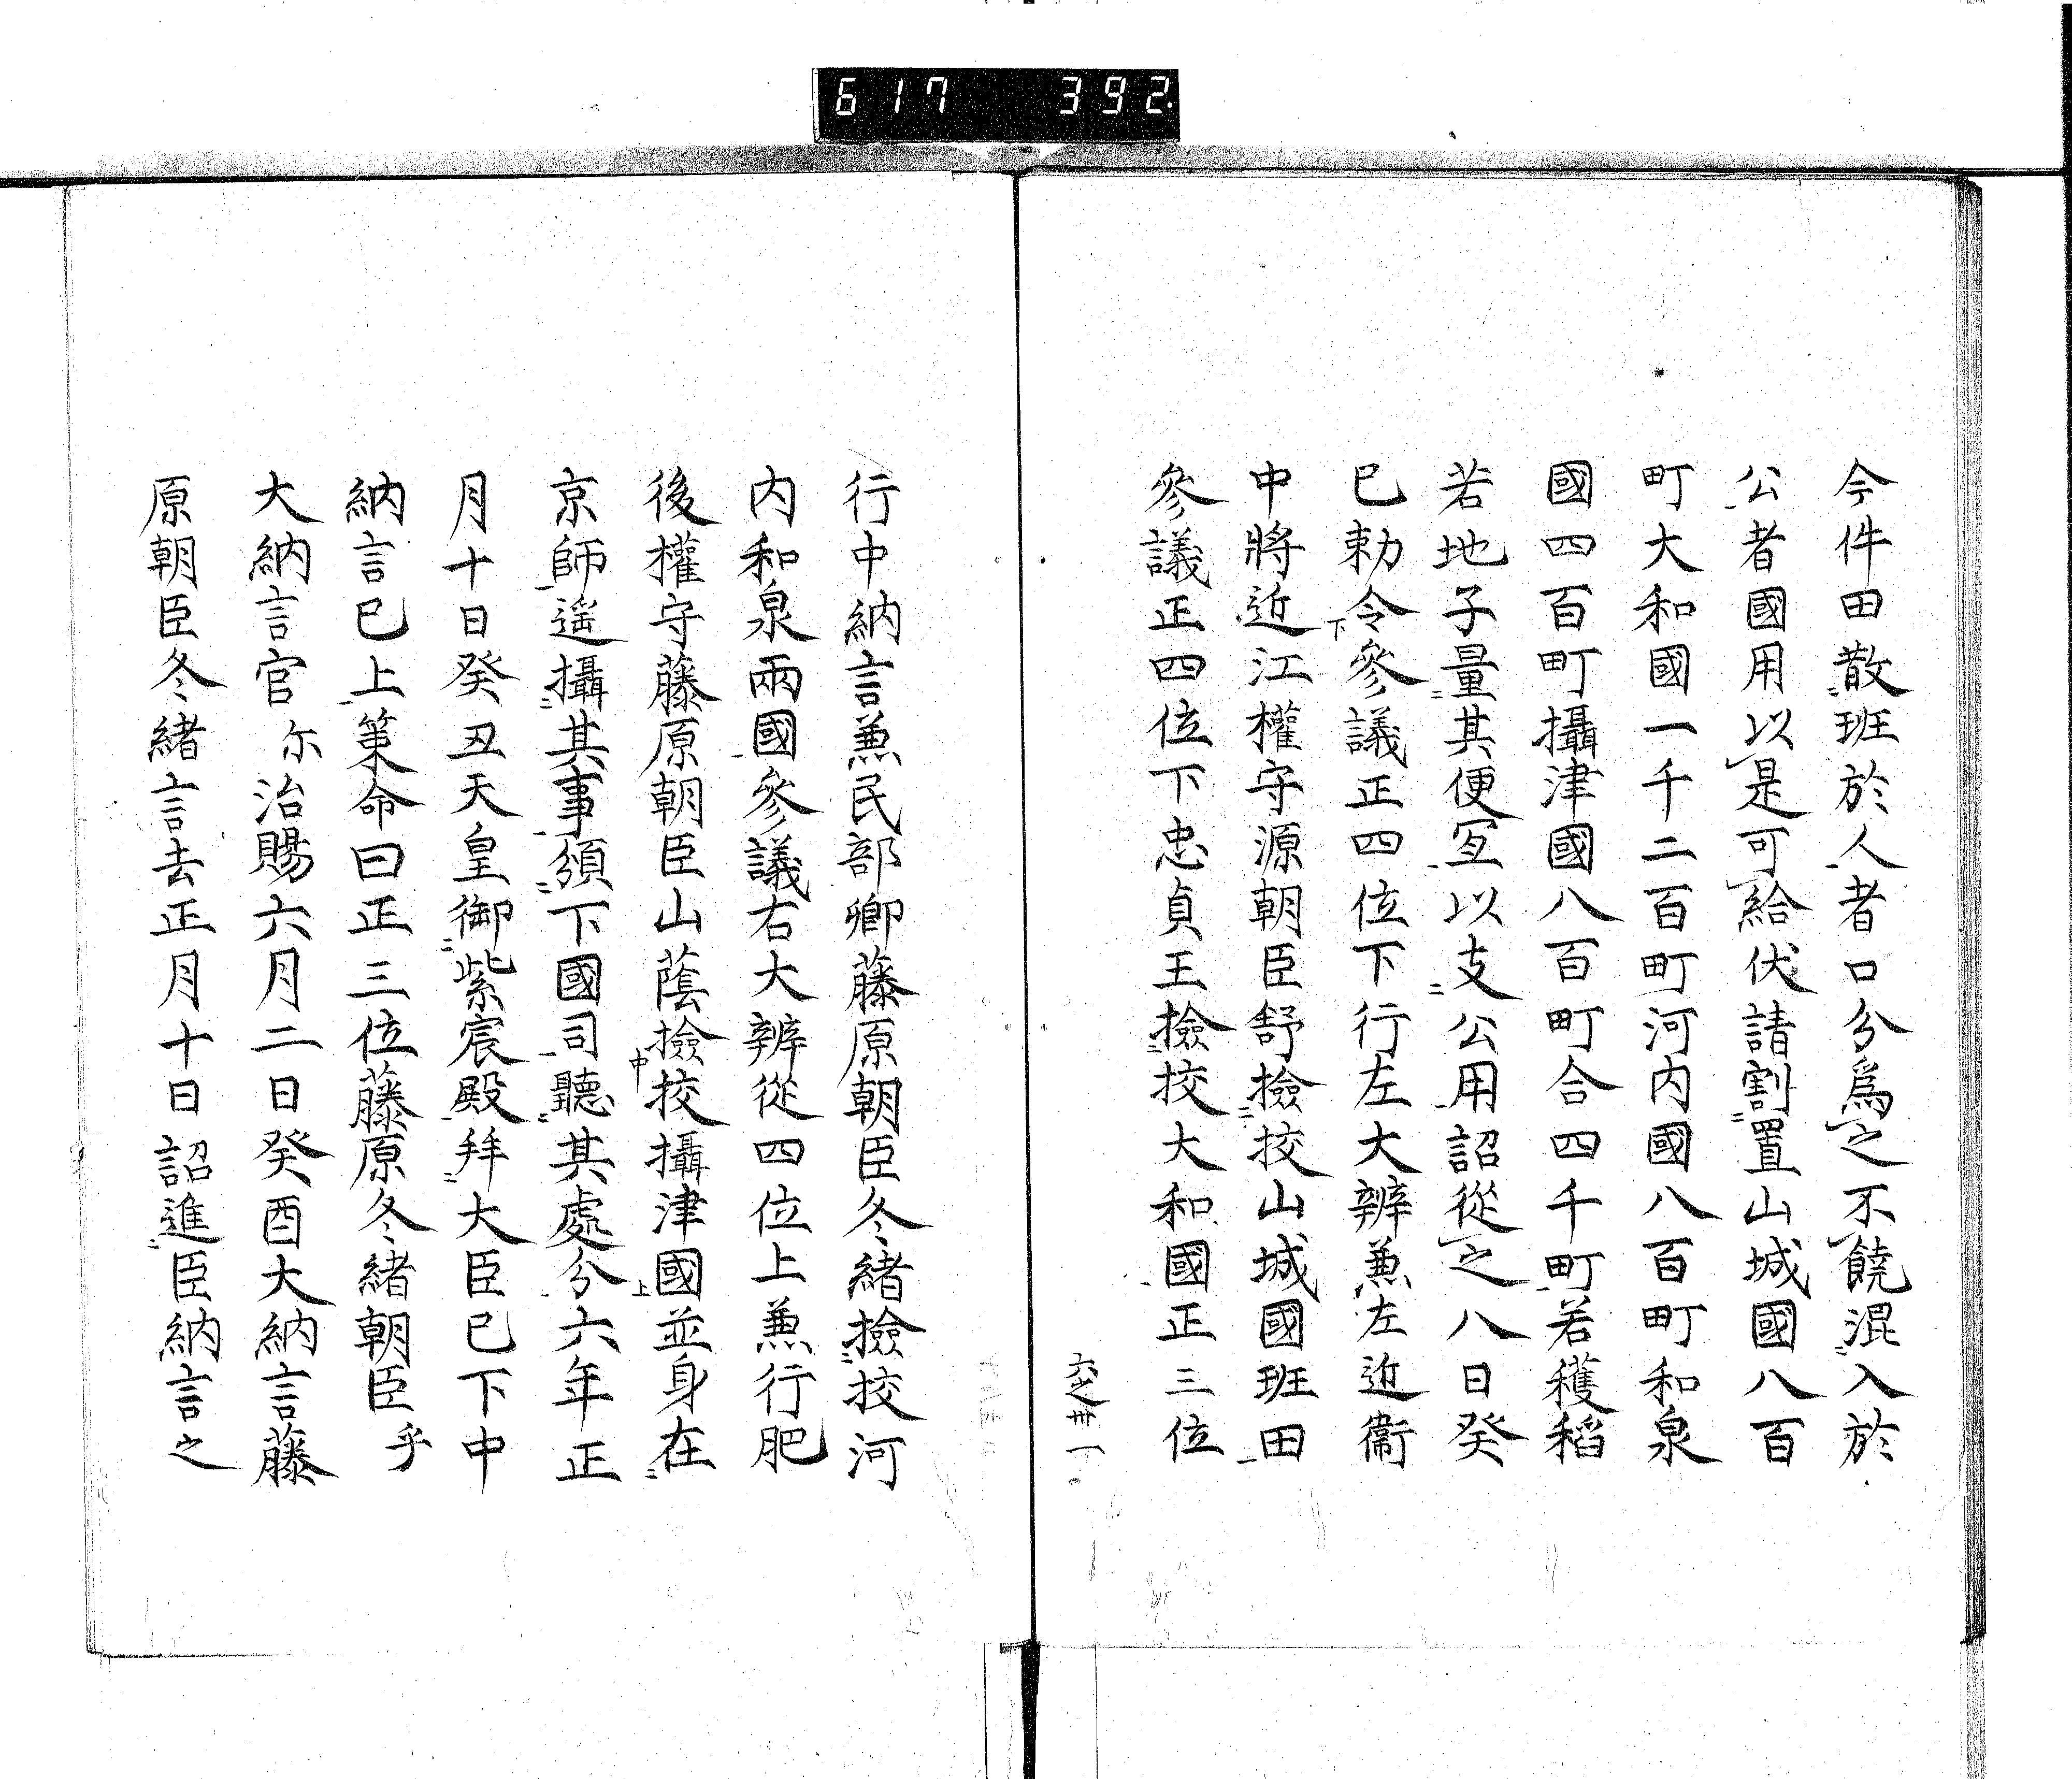 617 392
今件田散班於人者口分爲之不饒混入於
公者國用以是可給伏請割置山城國八百
町大和國一千二百町河内國八百町和泉
國四百町攝津國八百町合四千町若穫稻
若地子量其便冝以支公用詔從之八日癸
巳勅令參議正四位下行左大辨兼左近衞
中將近江權守源朝臣舒撿挍山城國班田
參議正四位下忠貞王撿挍大和國正三位
行中納言兼民部卿藤原朝臣冬緒撿挍河
内和泉兩國參議右大辨從四位上兼行肥
後權守藤原朝臣山蔭撿挍攝津國並身在
京師遥攝其事須下國司聽其處分六年正
月十日癸丑天皇御紫宸殿拜大臣已下中
納言已上策命曰正三位藤原冬緒朝臣乎
大納言官尓治賜六月二日癸酉大納言藤
原朝臣冬緒言去正月十日詔進臣納言之